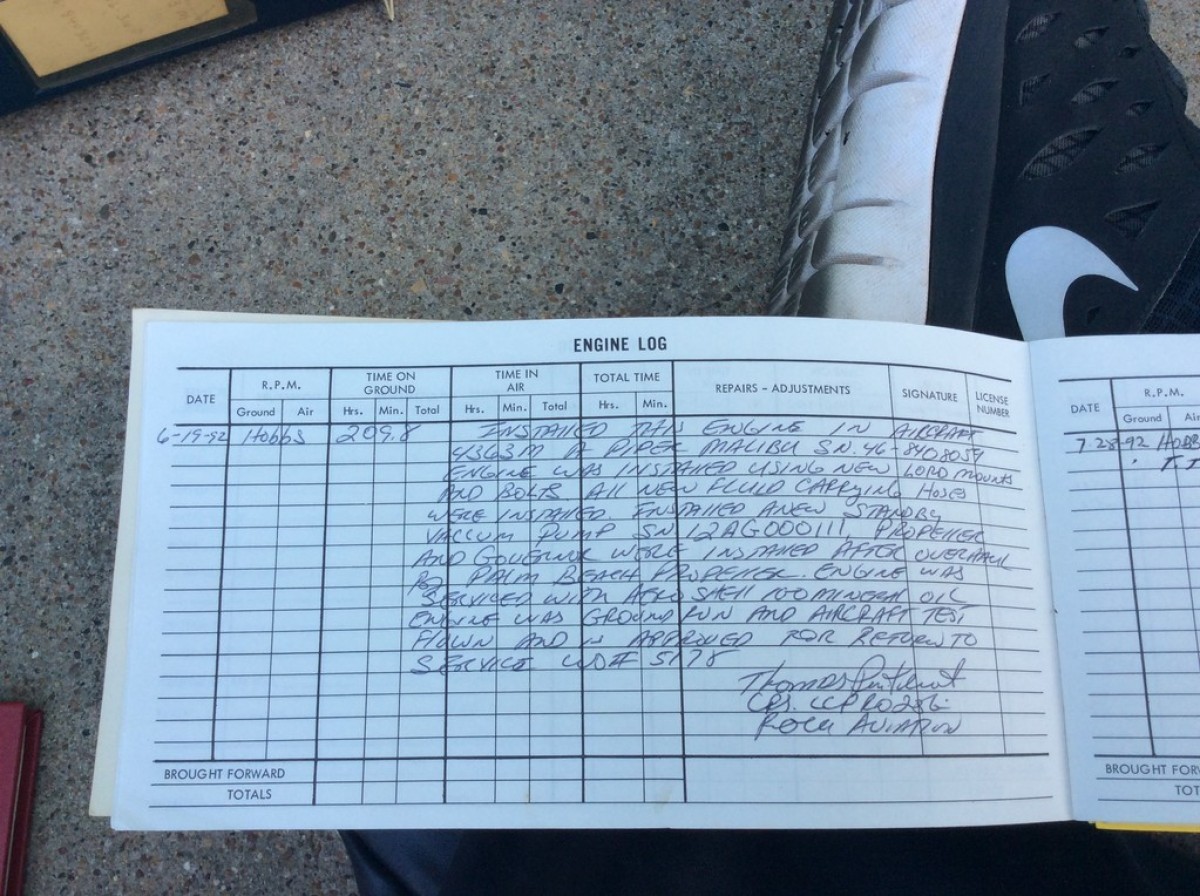 ENGINE LOG
DATE R.P.M. TIME ON GROUND TIME IN AIR TOTAL TIME REPAIRS - ADJUSTMENTS SIGNATURE LICENSE NUMBER
Ground Air Hrs. Min. Total Hrs. Min. Total Hrs. Min.
6-19-92 Hobbs 209.8 INSTALLED THIS ENGINE IN AIRCRAFT
4363M A PIPER MALIBU SN. 46-8408059
ENGINE WAS INSTALLED USING NEW LORD MOUNTS
AND BOLTS All NEW FLUID CARRYING HOSES
WERE INSTALLED. INSTALLED A NEW STANDBY
VACCUM PUMP SN 12AG000111, PROPELLER
AND GOVERNOR WERE INSTALLED AFTER OVERHAUL
By PALM BEACH PROPELLER. ENGINE WAS
SERVICED WITH AERO SHELL 100 MINERAL OIL
ENGINE WAS GROUND RUN AND AIRCRAFT TEST
FLOWN AND IS APPROVED FOR RETURN TO
SERVICE WO# 5178
Thomas
AVIATION
BROUGHT FORWARD
TOTALS
DATE R.P.M.
Ground
7-28-92
BROUGHT